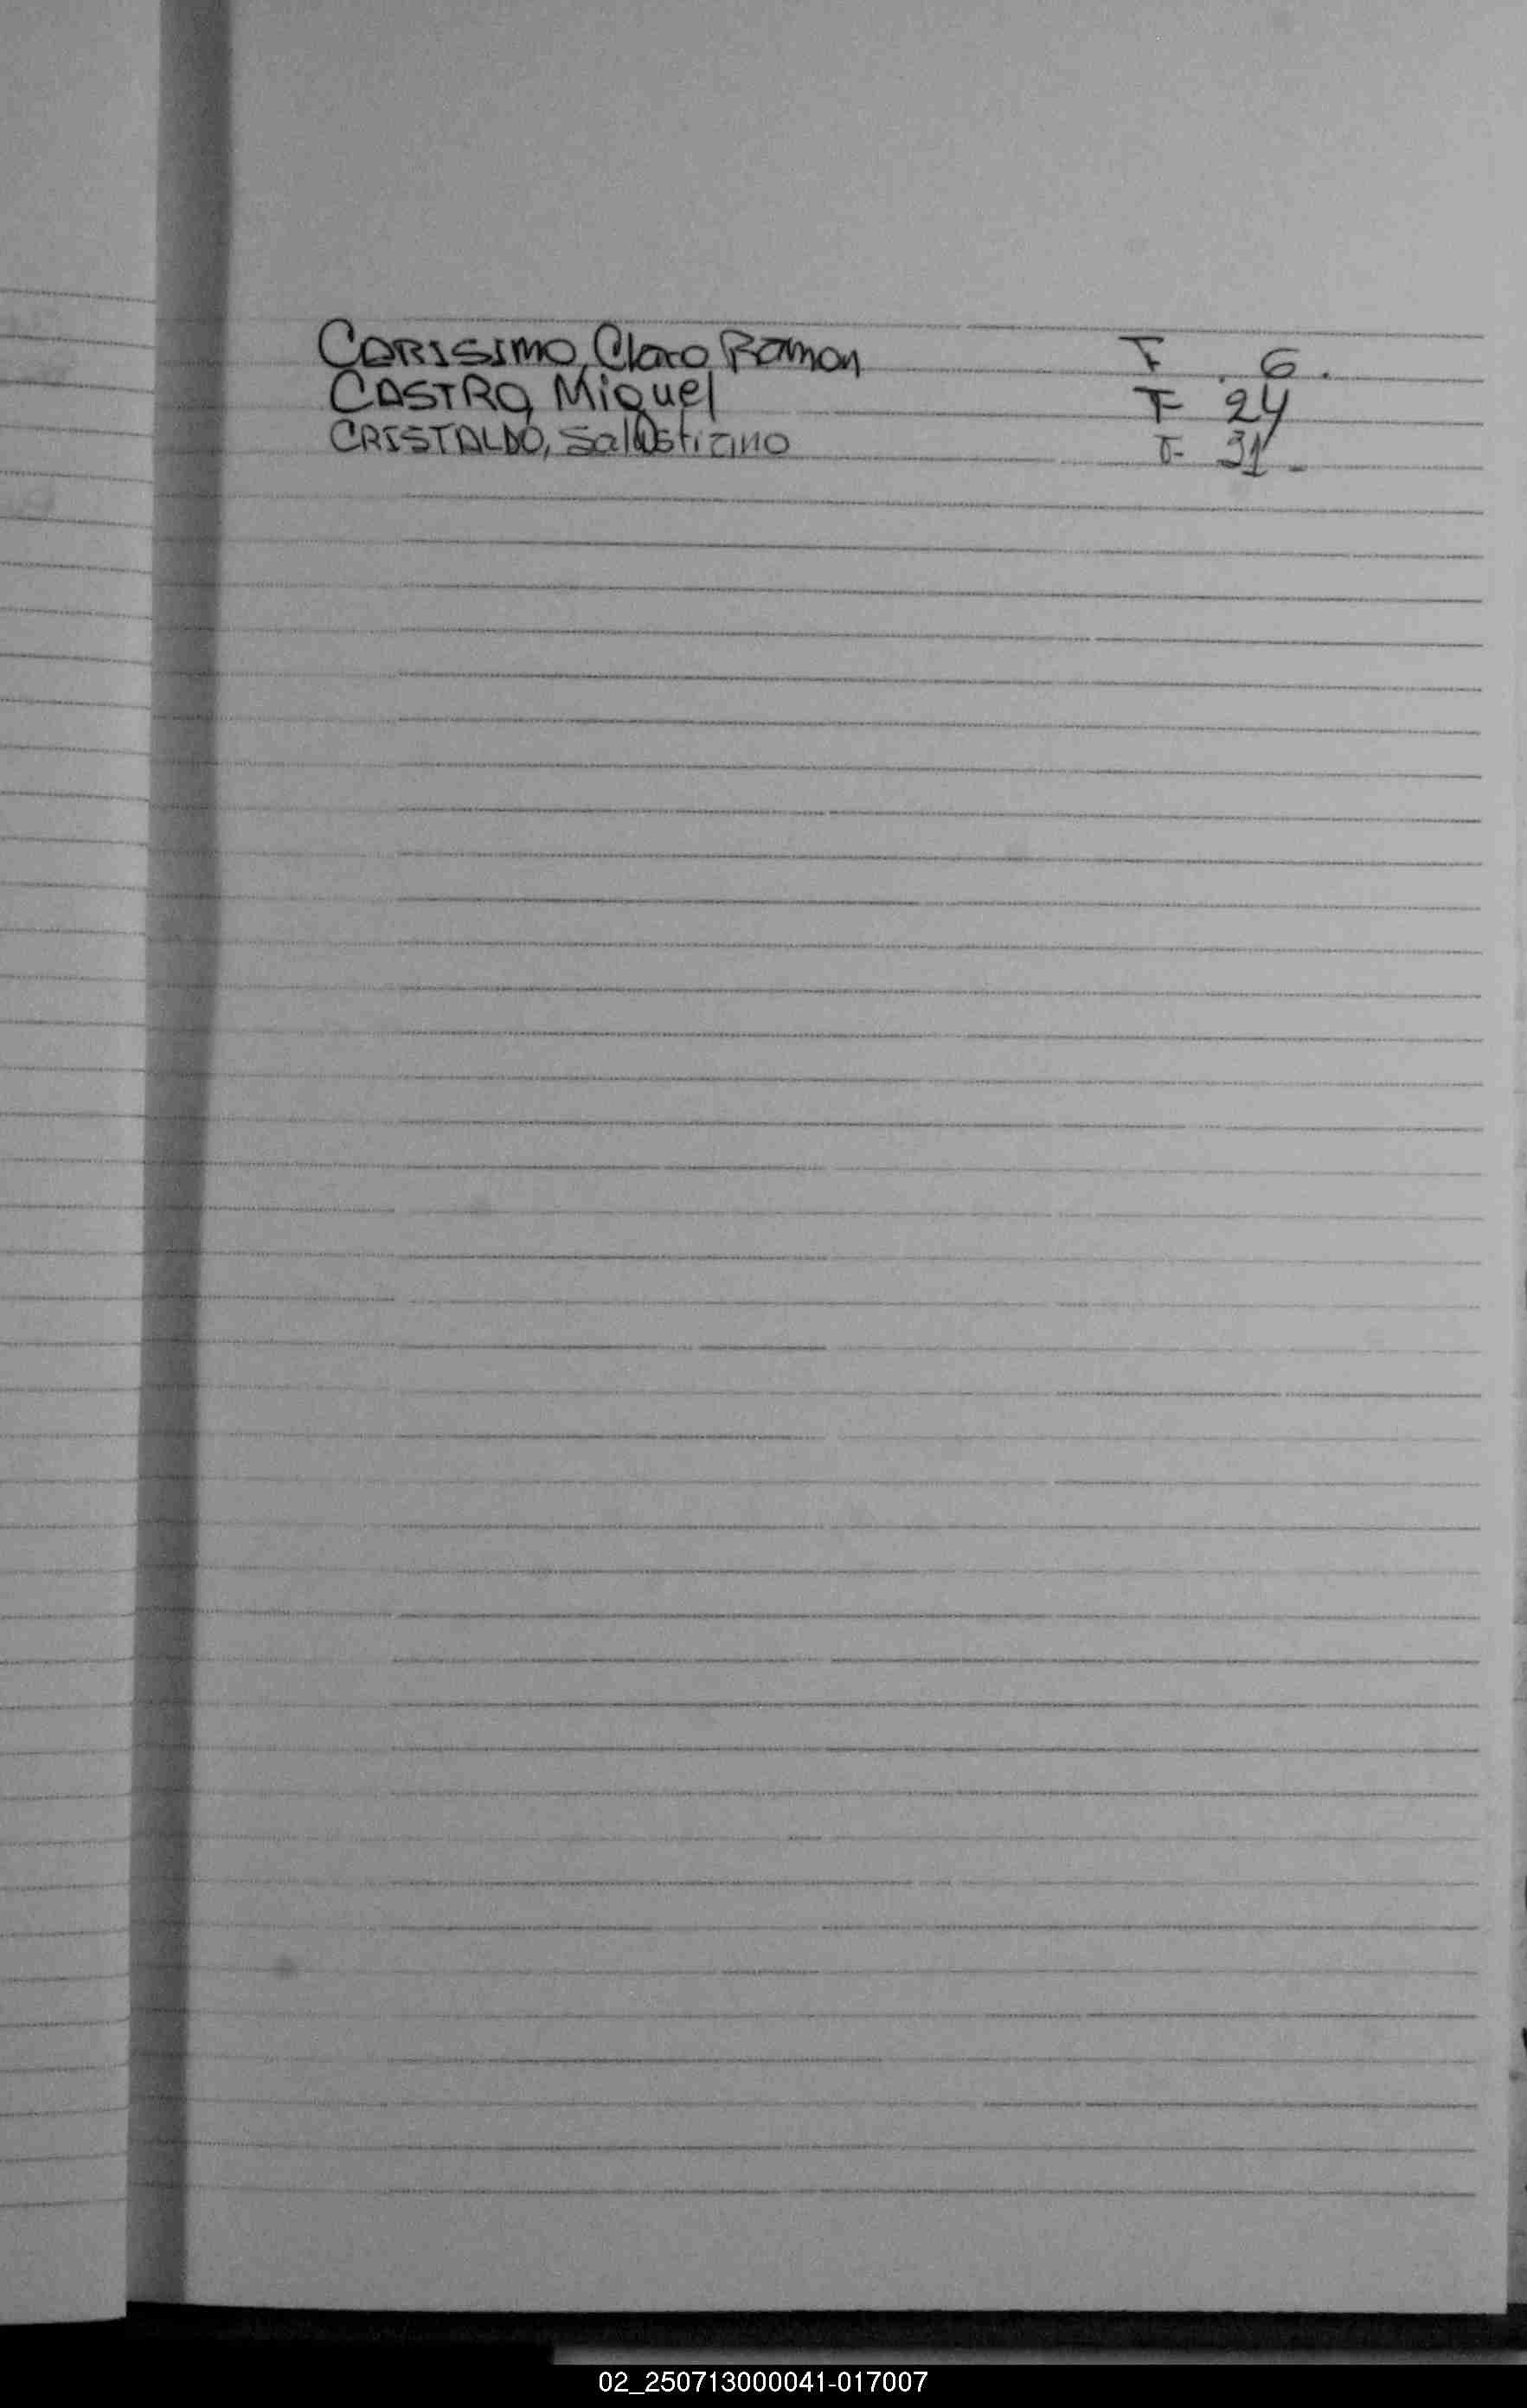 CARISIMO, Claro Ramon F. 6.
CASTRO, Miguel F 24
CRISTALDO, Salustiano F- 31-
02_250713000041-017007